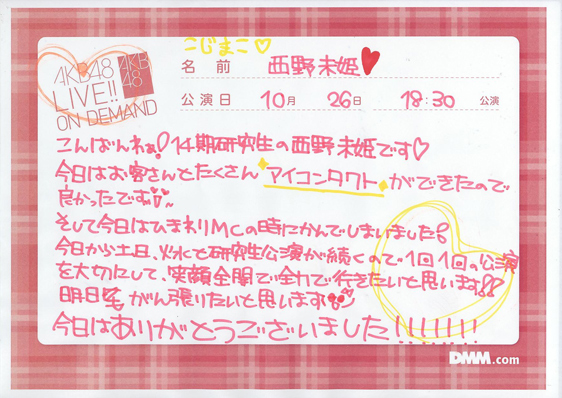 こじまこ♡
AKB48
LIVE!!
ON DEMAND
AKB
48
名前 西野未姫
公演日 10月 26日 18:30 公演
こんばんわぁ!14期研究生の西野未姫です♡
今日はお客さんとたくさんアイコンタクトができたので
良かったです
そして今日はひまわりMCの時にかんでしまいました
今日から土日、火水と研究生公演が続くので1回1回の公演
を大切にして、笑顔全開で全力で行きたいと思います!!
明日もがん張りたいと思います
今日はありがとうございました!!!!!!!
DMM.com